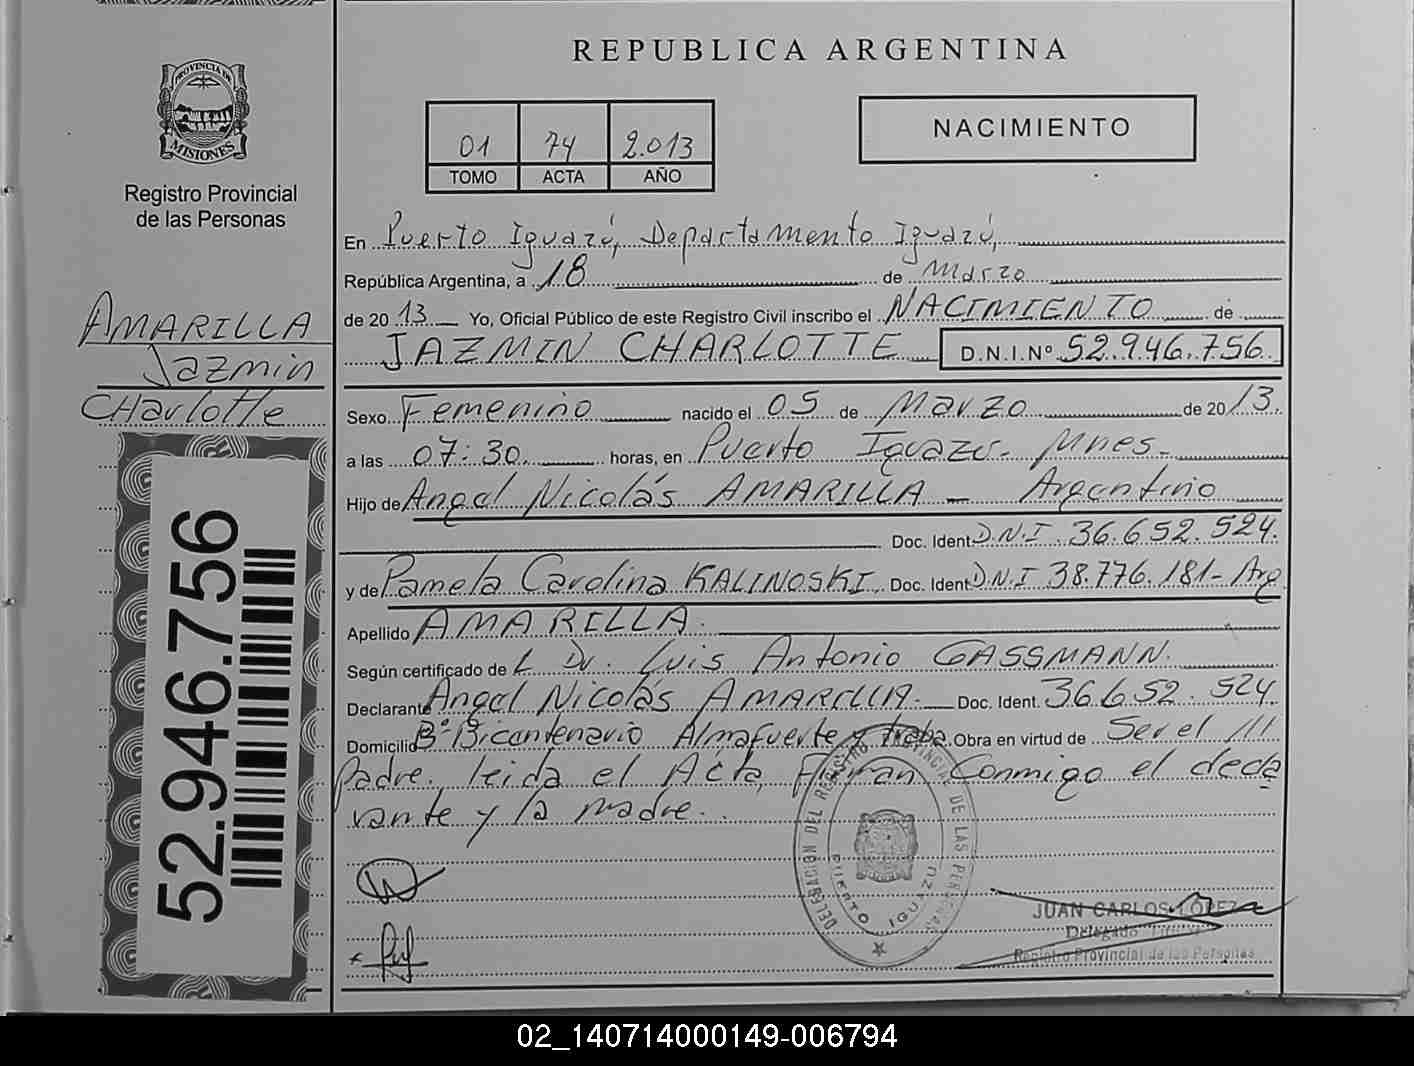 REPUBLICA ARGENTINA
PROVINCIA DE
MISIONES
Registro Provincial
de las Personas
01 74 2.013
TOMO ACTA AÑO
NACIMIENTO
En Puerto Iguazú, Departamento Iguazú,
República Argentina, a 18 de Marzo
de 2013 Yo, Oficial Público de este Registro Civil inscribo el NACIMIENTO de
JAZMIN CHARLOTTE D.N.I.Nº 52.946.756
AMARILLA
Jazmin
CHarlotte
Sexo Femenino nacido el 05 de Marzo de 2013.
a las 07:30. horas, en Puerto Iguazú- Mnes-
Hijo de Angel Nicolás AMARILLA - Argentino
Doc. Ident D.N.I. 36.652.524.
y de Pamela Carolina KALINOSKI. Doc. Ident D.N.I 38.776.181- Arg
Apellido AMARILLA.
Según certificado de L Dr. Luis Antonio GASSMANN.
Declarante Angel Nicolás AMARILLA. Doc. Ident. 36.652.524.
Domicilio Bº Bicentenario Almafuerte y Traba. Obra en virtud de Ser el
Padre. leida el Acta, Firman Conmigo el decla
rante y la madre.
52.946.756
DELEGACION DEL REGISTRO PROVINCIAL DE LAS PERSONAS
PUERTO IGUAZU
JUAN CARLOS LOPEZ
Delegado Titular
Registro Provincial de las Personas
02_140714000149-006794